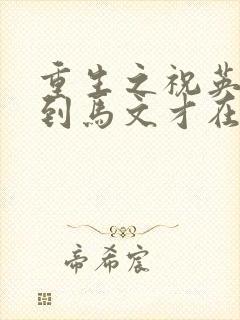 重生之祝英
到马文才在
帝希宸